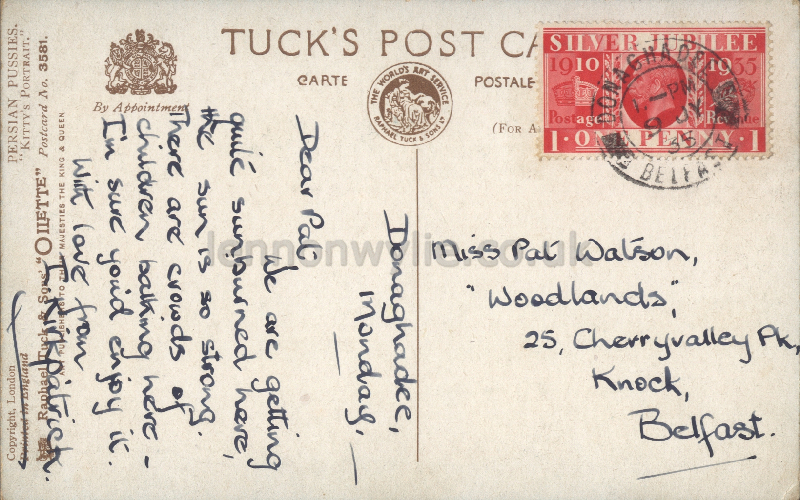 TUCK'S POST CA
CARTE
POSTALE
(FOR A
By Appointment
THE WORLD'S ART SERVICE
RAPHAEL TUCK & SONS LTD
SILVER JUBILEE
1910 1935
Postage Revenue
1·ONE PENNY·1
DONAGHADEE
PM
35
BELFAST
PERSIAN PUSSIES.
"KITTY'S PORTRAIT."
Raphael Tuck & Sons' "OILETTE" Postcard No. 3581.
ART PUBLISHERS TO THEIR MAJESTIES THE KING & QUEEN
Copyright, London
Printed in England
Donaghadee,
Monday,
Dear Pat
We are getting
quite sunburned here,
the sun is so strong.
There are crowds of
children bathing here -
I'm sure you'd enjoy it.
With love from
T. Kirkpatrick.
Miss Pat Watson,
"Woodlands",
25, Cherryvalley Pk,
Knock,
Belfast.
lennonwylie.co.uk